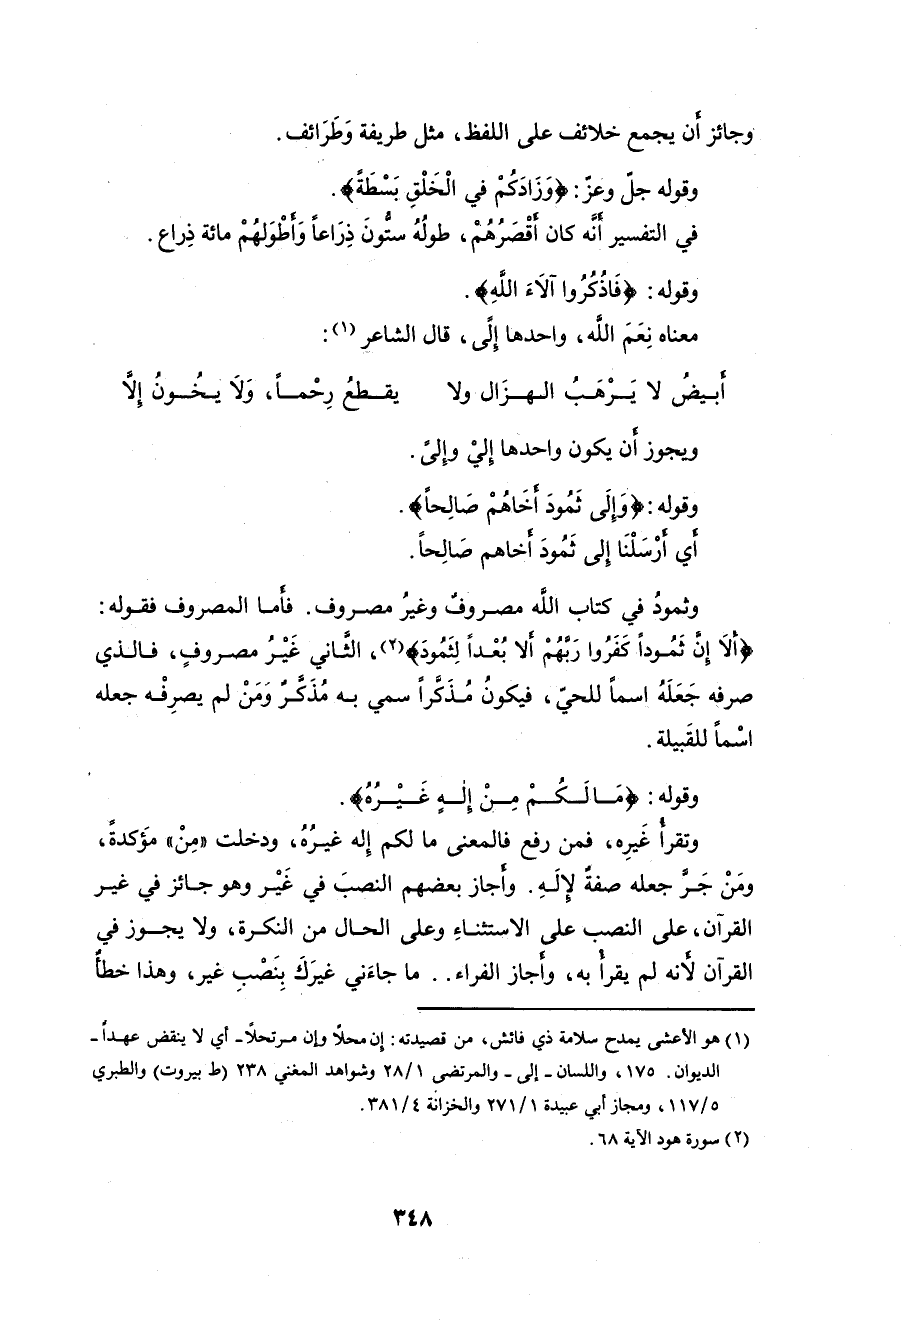 وجائز أَن يجمع خلائف على اللفظ، مثل طريفة وَطَرَائف.
وقوله جلّ وعزّ: ﴿وَزَادَكُمْ في الْخَلْقِ بَسْطَةً﴾.
في التفسير أَنَّه كان أَقْصَرُهُمْ، طولُهُ ستُّونَ ذِرَاعاً وَأَطْوَلهُمْ مائة ذِراع.
وقوله: ﴿فَاذْكُرُوا آلاَءَ اللَّهِ﴾.
معناه نِعَمَ اللَّه، واحدها إِلًى، قال الشاعر (١):
أَبـيضُ لا يَـرْهَـبُ الـهـزَال ولا يقـطعُ رِحْمـاً، وَلَا يـخُـونُ إلَّا
ويجوز أَن يكون واحدها إِليْ وإِلىً.
وقوله: ﴿وَإِلَى ثَمُودَ أَخَاهُمْ صَالِحاً﴾.
أي أَرْسَلْنَا إلى ثَمُودَ أَخاهم صَالحاً.
وثمودُ في كتاب اللَّه مصـروفٌ وغيرُ مصـروف. فأَمـا المصروف فقـوله:
﴿أَلَا إِنَّ ثَمُـوداً كَفَرُوا رَبَّهُمْ أَلا بُعْـداً لِثَمُودَ﴾(٢)، الثَّاني غَيْـرُ مصـروفٍ، فـالـذي
صرفه جَعَلَهُ اسماً للحيّ، فيكونُ مُـذَكَّراً سمي بـه مُذَكَّـرٌ وَمَنْ لم يصرِفْـه جعله
اسْماً للقَبيلة.
وقوله: ﴿مَـا لَـكُـمْ مِـنْ إِلٰـهٍ غَـيْـرُهُ﴾.
وتقرأُ غَيرِه، فمن رفع فالمعنى ما لكم إله غيـرُهُ، ودخلت «مِنْ» مؤَكدةً،
ومَنْ جَـرَّ جعله صفةً لإِلَـهِ. وأَجاز بعضهم النصبَ في غَيْـر وهو جـائز في غيـر
القرآن، على النصب على الاستثنـاءِ وعلى الحـال من النكـرة، ولا يجـوز في
القرآن لأنه لم يقرأْ به، وأَجاز الفراء.. ما جاءَني غيرَكَ بِنَصْبِ غير، وهذا خطأٌ
(١) هو الأعشى يمدح سلامة ذي فائش، من قصيدته: إن محلاً وإن مـرتحلاً- أي لا ينقض عهـداً-
الديوان. ١٧٥، واللسان - إلى - والمرتضى ٢٨/١ وشواهد المغني ٢٣٨ (ط بيروت) والطبري
١١٧/٥، ومجاز أبي عبيدة ٢٧١/١ والخزانة ٣٨١/٤.
(٢) سورة هود الآية ٦٨.
٣٤٨